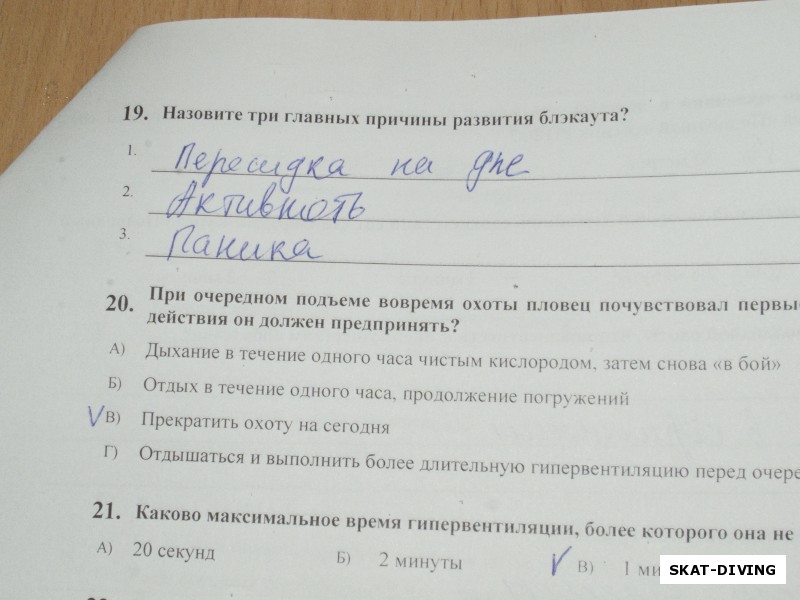 19. Назовите три главных причины развития блэкаута?
1. Пересидка на дне
2. Активноть
3. Паника
20. При очередном подъеме вовремя охоты пловец почувствовал первые
действия он должен предпринять?
А) Дыхание в течение одного часа чистым кислородом, затем снова «в бой»
Б) Отдых в течение одного часа, продолжение погружений
V В) Прекратить охоту на сегодня
Г) Отдышаться и выполнить более длительную гипервентиляцию перед
21. Каково максимальное время гипервентиляции, более которого она не
А) 20 секунд Б) 2 минуты V В) 1
SKAT-DIVING